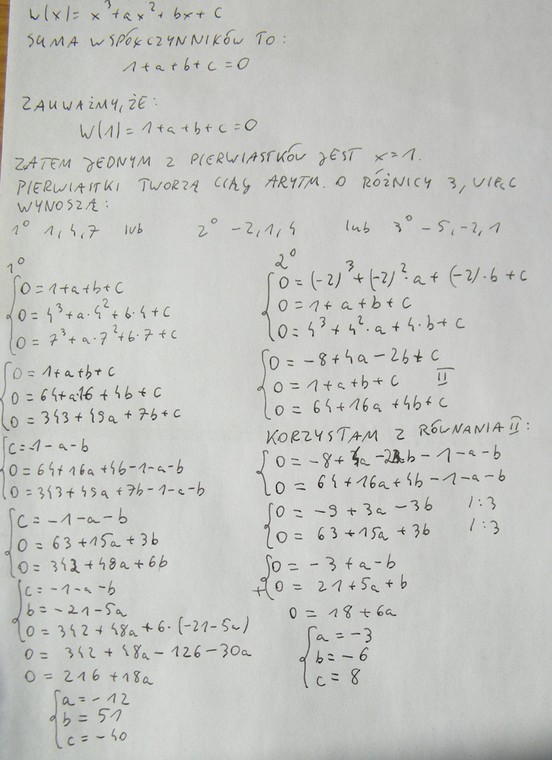 W(x) = x³+ax²+bx+c
SUMA WSPÓŁCZYNNIKÓW TO:
1+a+b+c=0
ZAUWAŻMY, ŻE:
W(1) = 1+a+b+c=0
ZATEM JEDNYM Z PIERWIASTKÓW JEST x=1.
PIERWIASTKI TWORZĄ CIĄG ARYTM. O RÓŻNICY 3, WIĘC
WYNOSZĄ:
1° 1,4,7 lub 2° -2,1,4 lub 3° -5,-2,1
1°
0=1+a+b+c
0=4³+a·4²+b·4+c
0=7³+a·7²+b·7+c
0=1+a+b+c
0=64+a16+4b+c
0=343+49a+7b+c
c=-1-a-b
0=64+16a+4b-1-a-b
0=343+49a+7b-1-a-b
c=-1-a-b
0=63+15a+3b
0=342+48a+6b
c=-1-a-b
b=-21-5a
0=342+48a+6·(-21-5a)
0=342+48a-126-30a
0=216+18a
a=-12
b=51
c=-40
2°
0=(-2)³+(-2)²·a+(-2)·b+c
0=1+a+b+c
0=4³+4²·a+4·b+c
0=-8+4a-2b+c
0=1+a+b+c II
0=64+16a+4b+c
KORZYSTAM Z RÓWNANIA II:
0=-8+4a-2b-1-a-b
0=64+16a+4b-1-a-b
0=-9+3a-3b /:3
0=63+15a+3b /:3
0=-3+a-b
+ 0=21+5a+b
0=18+6a
a=-3
b=-6
c=8